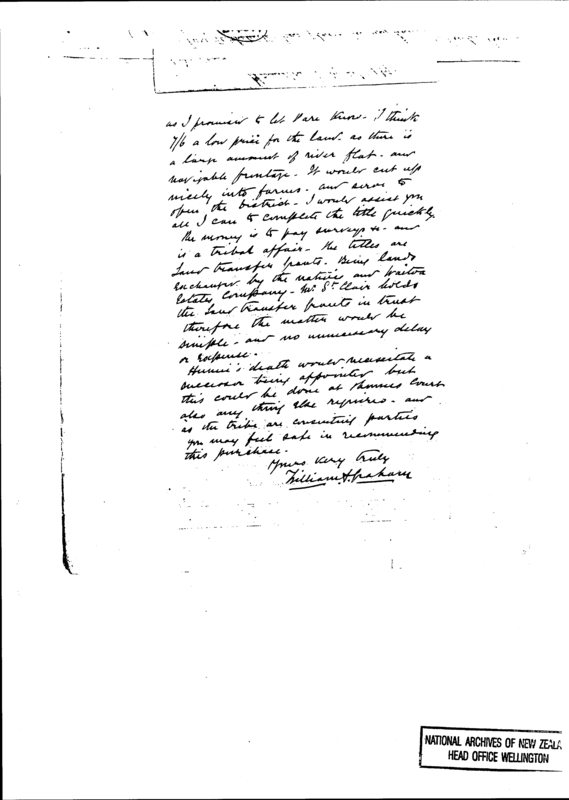 as I promised to let Pare know. I think
7/6 a low price for the land. as there is
a large amount of river flat. and
navigable frontage. It would cut up
nicely into farms. and serve to
open the District. I would assist you
all I can to complete the title quickly.
The money is to pay surveys &c. and
is a tribal affair. The titles are
Land transfer grants. Being lands
Exchanged by the natives and Waitoa
Estates Company. Mr. St. Clair holds
the Land transfer grants in trust
therefore the matter would be
simple. and no unnecessary delay
or expense.
death would necessitate a
successor being appointed but
this could be done at Thames Court
also any thing else required. and
as the tribe are consenting parties
you may feel safe in recommending
this purchase.
Yours very truly
William A. Graham
NATIONAL ARCHIVES OF NEW ZEALA
HEAD OFFICE WELLINGTON